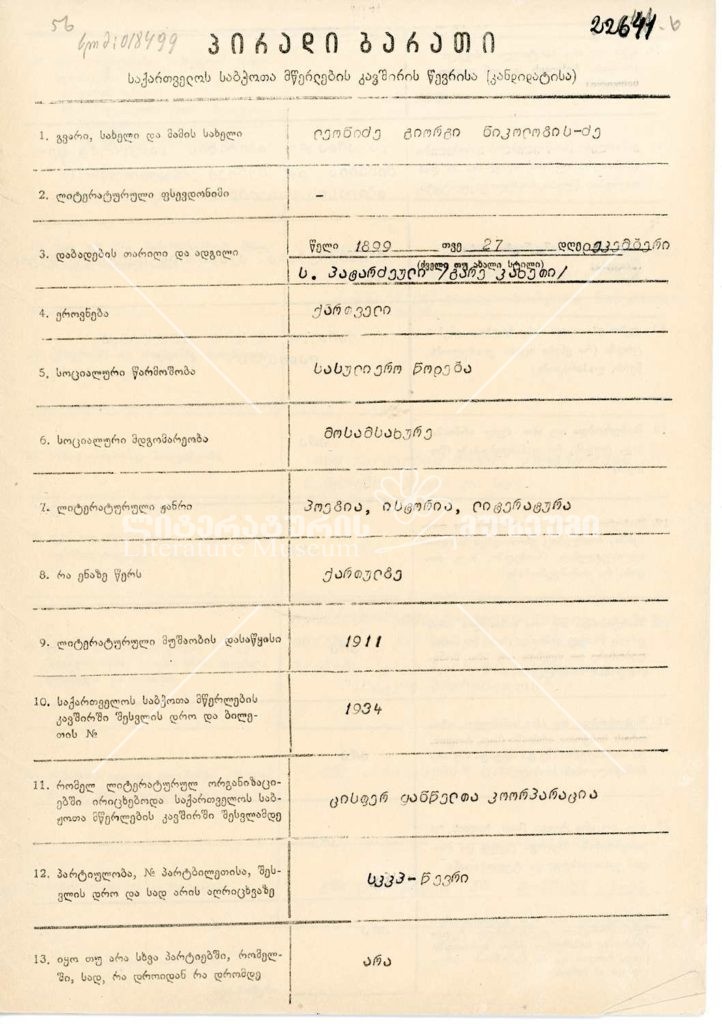 56
22641-ხ
პირადი ბარათი
საქართველოს საბჭოთა მწერლების კავშირის წევრისა (კანდიდატისა)
1. გვარი, სახელი და მამის სახელი
ლეონიძე გიორგი ნიკოლოზის-ძე
2. ლიტერატურული ფსევდონიმი
-
3. დაბადების თარიღი და ადგილი
წელი 1899 თვე 27 დღე დეკემბერი
(ძველი თუ ახალი სტილი)
ს. პატარძეული /გარე კახეთი/
4. ეროვნება
ქართველი
5. სოციალური წარმოშობა
სასულიერო წოდება
6. სოციალური მდგომარეობა
მოსამსახურე
7. ლიტერატურული ჟანრი
პოეზია, ისტორია, ლიტერატურა
ლიტერატურის მუზეუმი
Literature Museum
8. რა ენაზე წერს
ქართულზე
9. ლიტერატურული მუშაობის დასაწყისი
1911
10. საქართველოს საბჭოთა მწერლების
კავშირში შესვლის დრო და ბილე-
თის №
1934
11. რომელ ლიტერატურულ ორგანიზაცი-
ებში ირიცხებოდა საქართველოს საბ-
ჭოთა მწერლების კავშირში შესვლამდე
ცისფერ ყანწელთა კოორპარაცია
12. პარტიულობა, № პარტბილეთისა, შეს-
ვლის დრო და სად არის აღრიცხვაზე
სკკპ-წევრი
13. იყო თუ არა სხვა პარტიებში, რომელ-
ში, სად, რა დროიდან რა დრომდე
არა